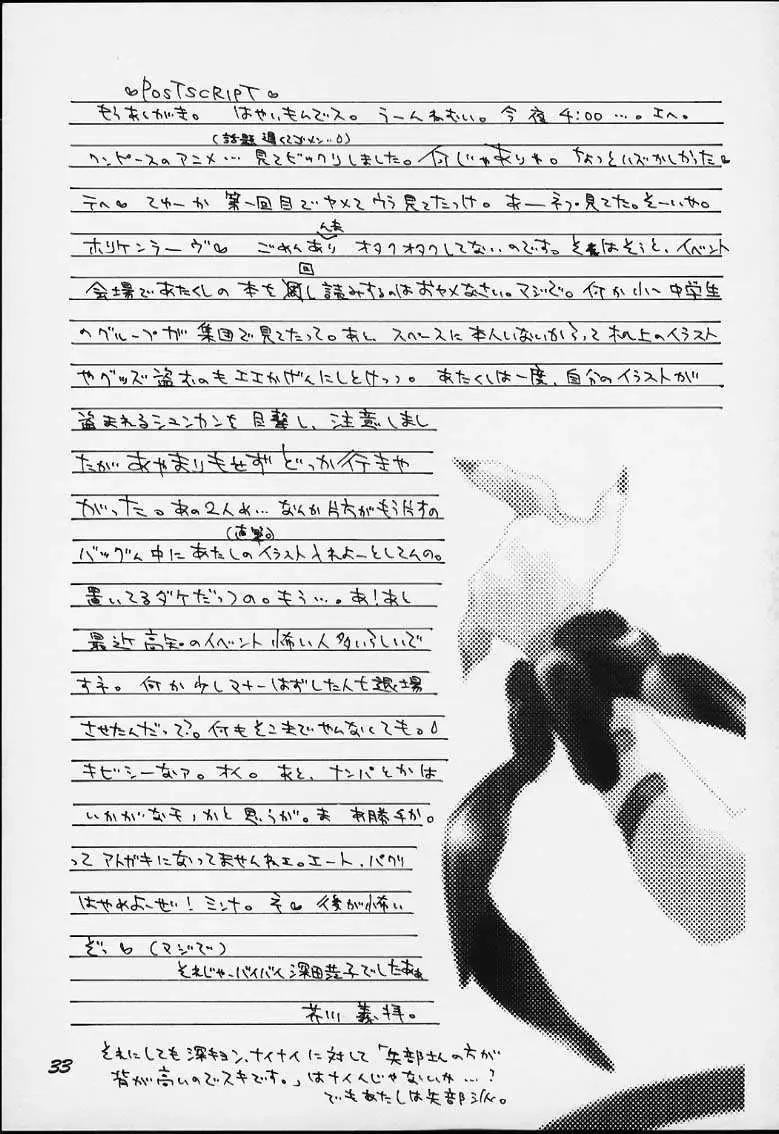 ♥POSTSCRIPT♥
もうあとがき。 はやいもんでス。うーんねむい。今夜4:00…。エヘ。
(話題遅くてゴメン…)
ワンピースのアニメ…見てビックリしました。何じゃありゃ。ちょっといズかしかった♥
テヘ♥ てゆーか 第一回目でヤメてウラ見てたっけ。あーネプ見てた。そーいや。
ホリケンラーヴ♥ ごめんあんまり オタクオタクしてないのです。それはそうと、イベント
会場であたくしの本を回し読みするのはおヤメなさい。マジで。何か小〜中学生
のグループが集団で見てたって。あと、スペースに本人いないからって机上のイラスト
やグッズ盗むのもエエかげんにしとけっつ。 あたくしは一度、自分のイラストが
盗まれるシュンカンを目撃し、注意しまし
たがあやまりもせずどっか行きや
がった。あの2人め…なんか片方がもう片方の
バッグん中に(直接)あたしのイラスト入れよーとしてんの。
置いてるダケだっつの。もう…。あ!あと
最近高知のイベント怖い人多いらしいで
すネ。何か少しマナーはずした人も退場
させたんだって?。何もそこまでやんなくても。
キビシーなァ。オイ。 あと、ナンパとかは
いかがなモノかと思うが。ま お勝手か。
ってアトガキになってませんねェ。エート、パクリ
はやめよーぜ!ミンナ。ネ♥ 後が怖い
ぞっ♥(マジで)
それじゃーバイバイ深田恭子でしたぁぁ
芥川 義拝。
それにしても深キョン、ナイナイに対して「矢部さんの方が
背が高いのでスキです。」はナイんじゃないか…?
でもあたしは矢部派。
33